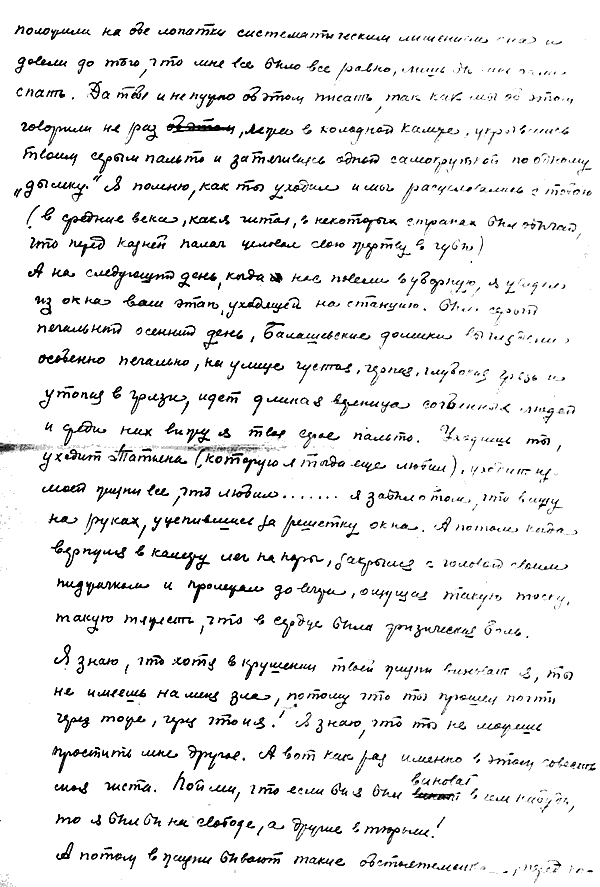 положили на обе лопатки систематическим лишением сна и
довели до того, что мне все было все равно, лишь бы мне дали
спать. Да тебе и не нужно об этом писать, так как мы об этом
говорили не раз об этом, лежа в холодной камере, укрывшись
твоим серым пальто и затягиваясь одной самокруткой по одному
„дымку." Я помню, как ты уходил и мы расцеловались с тобою
(в средние века, как я читал, в некоторых странах был обычай,
что перед казней палач целовал свою жертву в губы)
А на следующий день, когда нас повели в уборную, я увидел
из окна ваш этап, уходящей на станцию. Был серый
печальный осенний день, Балашевские домики выглядели
особенно печально, на улице густая, черная, глубокая грязь и
утопая в грязи, идет длинная вереница согбенных людей
и среди них вижу я твое серое пальто. Уходишь ты,
уходит Татьяна (которую я тогда еще любил), уходит из
моей жизни все, что любил....... я забыл о том, что вишу
на руках, уцепившись за решетку окна. А потом когда
вернулся в камеру лег на нары, закрылся с головой своим
пиджачком и пролежал до вечера, ощущая такую тоску,
такую тяжесть, что в сердце была физическая боль.
Я знаю, что хотя в крушении твоей жизни виноват я, ты
не имеешь на меня зла, потому что ты прошел почти
через тоже, через что и я! Я знаю, что ты не можешь
простить мне другое. А вот как раз именно в этом совесть
моя чиста. Пойми, что если бы я был виноват в чем нибудь,
то я был бы на свободе, а другие в тюрьме!
А потом в жизни бывают такие обстоятельства перед